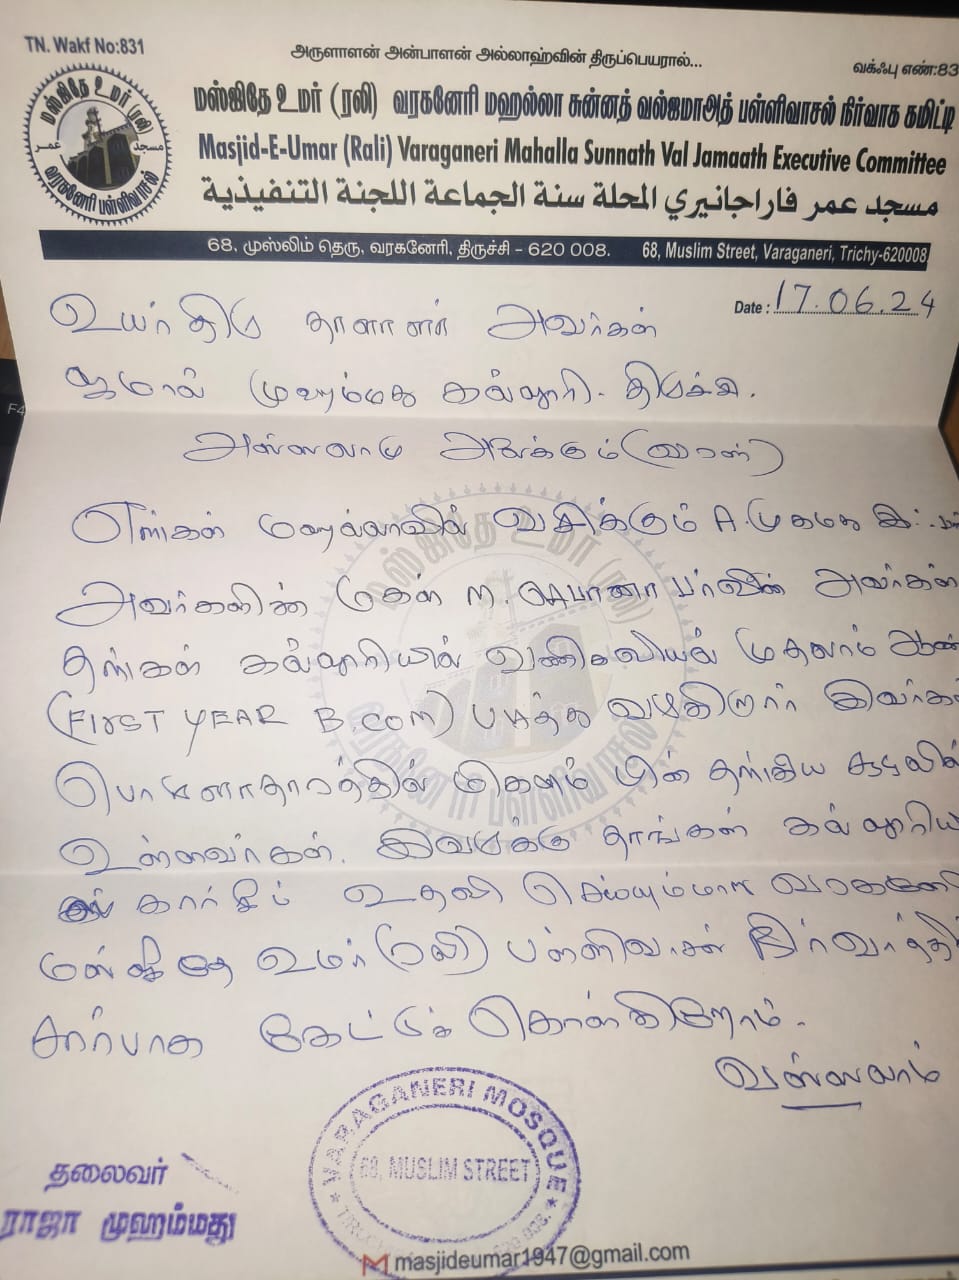 TN. Wakf No:831
அருளாளன் அன்பாளன் அல்லாஹ்வின் திருப்பெயரால்...
வக்ஃபு எண்:83
மஸ்ஜிதே உமர் (ரலி) வரகனேரி மஹல்லா சுன்னத் வல்ஜமாஅத் பள்ளிவாசல் நிர்வாக கமிட்டி
Masjid-E-Umar (Rali) Varaganeri Mahalla Sunnath Val Jamaath Executive Committee
مسجد عمر فاراجانيري المحلة سنة الجماعة اللجنة التنفيذية
68, முஸ்லிம் தெரு, வரகனேரி, திருச்சி - 620 008. 68, Muslim Street, Varaganeri, Trichy-620008
Date : 17.06.24
உயர்திரு தாளாளர் அவர்கள்
ஜமால் முஹம்மது கல்லூரி - திருச்சி.
அஸ்ஸலாமு அலைக்கும் (வரஹ்)
எங்கள் மஹல்லாவில் வசிக்கும் A. முகமது
அவர்களின் மகள் M. பர்வீன் அவர்கள்
தங்கள் கல்லூரியில் வணிகவியல் முதலாம் ஆண்
(FIRST YEAR B.COM) படித்து வருகிறார் இவர்கள்
பொருளாதாரத்தில் மிகவும் பின் தங்கிய சூழலில்
உள்ளவர்கள். இவருக்கு தாங்கள் கல்லூரிய
உதவி செய்யுமாறு வரகனே
மஸ்ஜிதே உமர் (ரலி) பள்ளிவாசல் நிர்வாகத்தி
சார்பாக கேட்டுக் கொள்கிறோம்.
வஸ்ஸலாம்
WARAGANERI MOSQUE
68, MUSLIM STREET
தலைவர்
ராஜா முஹம்மது
masjideumar1947@gmail.com